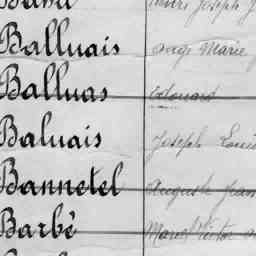 Joseph
Balluais ange Marie
Balluas Edouard
Baluais Joseph Louis
Bannetel Auguste Jean
Barbé Marcel Victor